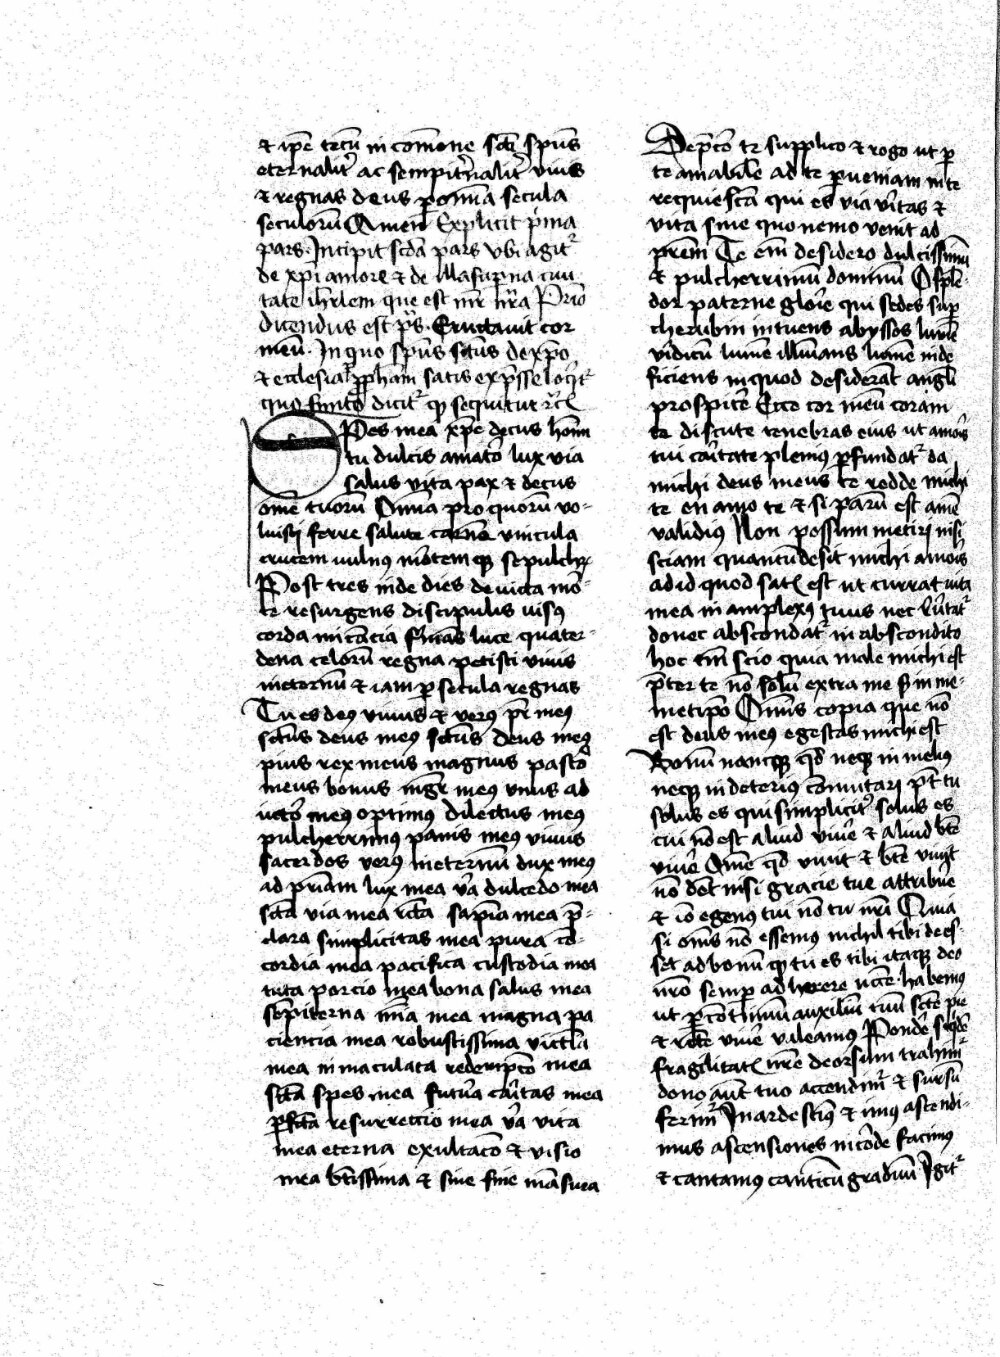 & ip̄e tecū in com̄one sc̄i sp̄us
eternalit᷒ ac sempit᷒nalit᷒ viuis
& regnas deus p om̄ia secula
seculorū Amen Explicit p̄ma
pars. Incipit sc̄da pars vbi agit᷒
de xp̄i amore & de illa sup̄na ciui
tate ih̄rlem que est mr̄ nr̄a Prīo
dicendus est p̄s. Eructauit cor
meū. In quo sp̄us sc̄tus de xp̄o
& ecclesia p ph̄am satis exp̄sse loq̄t᷒
quo finito dicit᷒ qd sequitur
Spes mea xp̄e decus hoīm
tu dulcis amator lux via
salus vita pax & decus
om̄e tuorū Om̄ia pro quorū vo-
luisti ferre salute carnē vincula
crucem uulnus mōtem qꝫ sepulchꝝ
Post tres inde dies deuicta mo-
te resurgens discipulis uisꝰ
corda micācia luce quater-
dena celorū regna petisti viuis
ineternū & iam p secula regnas
Tu es deꝰ viuus & verꝰ pr̄ meꝰ
sc̄tus deus meꝰ sc̄tus deus meꝰ
pius rex meus magnus pastō
meus bonus mḡr meꝰ vnus ad
iutō meꝰ optimus dilectus meꝰ
pulcherrimus panis meꝰ viuus
sacerdos verꝰ ineternū dux meꝰ
ad pr̄iam lux mea v̄a dulcedo mea
sc̄ta via mea rc̄ta sapiā mea p̄-
clara simplicitas mea pura cō-
cordia mea pacifica custodia mea
tuta porcio mea bona salus mea
sēpiterna mīa mea magna pa
ciencia mea robustissima victīa
mea inmaculata redempcō mea
sc̄ta spes mea futūa cāitas mea
pfc̄ta resurreccio mea v̄a vita
mea eterna exultacō & visio
mea bt̄issima & sine fine māsura
Dep̄cor te supplico & rogo ut p
te amabile ad te pueniam in te
requiescā qui es via v̄itas &
vita sine quo nemo venit ad
prēm Te em̄ desidero dulcissimū
& pulcherrimū dominū O sple-
dor paterne gloīe qui sedes sup
cherubin intuens abyssos lumē
v̄idicū lumē illūinans lumē inde
ficiens in quod desiderāt angl̄i
prospicē Ecce cor meū coram
te discute tenebras eius ut amoīs
tui cāitate plenius pfundat᷒ da
michi deus meus te redde michi
te en amo te & si parū est amē
validiꝰ Non possum metiri nisi
sciam quantū desit michi amoīs
ad id quod sat est ut currat vita
mea in amplexꝰ tuus nec
donec abscondat᷒ in abscondito
hoc tm̄ scio quia male michi est
p̄ter te nō solū extra me s in me-
metip̄o Om̄is copia que nō
est deus meꝰ egestas michi est
Bonū nancqꝫ qd̄ neqꝫ in melius
neqꝫ in deteriꝰ cōmutari pt̄ tu
solus es qui simplicit᷒ solus es
cui nō est aliud viuē & aliud bt̄e
viuē Om̄e qd̄ viuit & bt̄e viuit
nō det nisi gracie tue attribūe
& iō egenus tui nō tu nr̄i Quia
si om̄s nō essemꝰ nichil tibi dees-
set ad bonū qd tu es tibi itaqꝫ deo
nr̄o semp ad herere nc̄ce habemꝰ
ut p cōtinuū auxiliū tuū sc̄te pie
& rc̄te viuē valeamus Pondē
fragilitat nr̄e deorsum trahim᷒
dono aut̄ tuo accendim᷒ & sursū
ferim᷒ Inardescimꝰ & imus ascendi-
mus ascensiones in cōde facimꝰ
& cantamꝰ canticū graduū Igit᷒